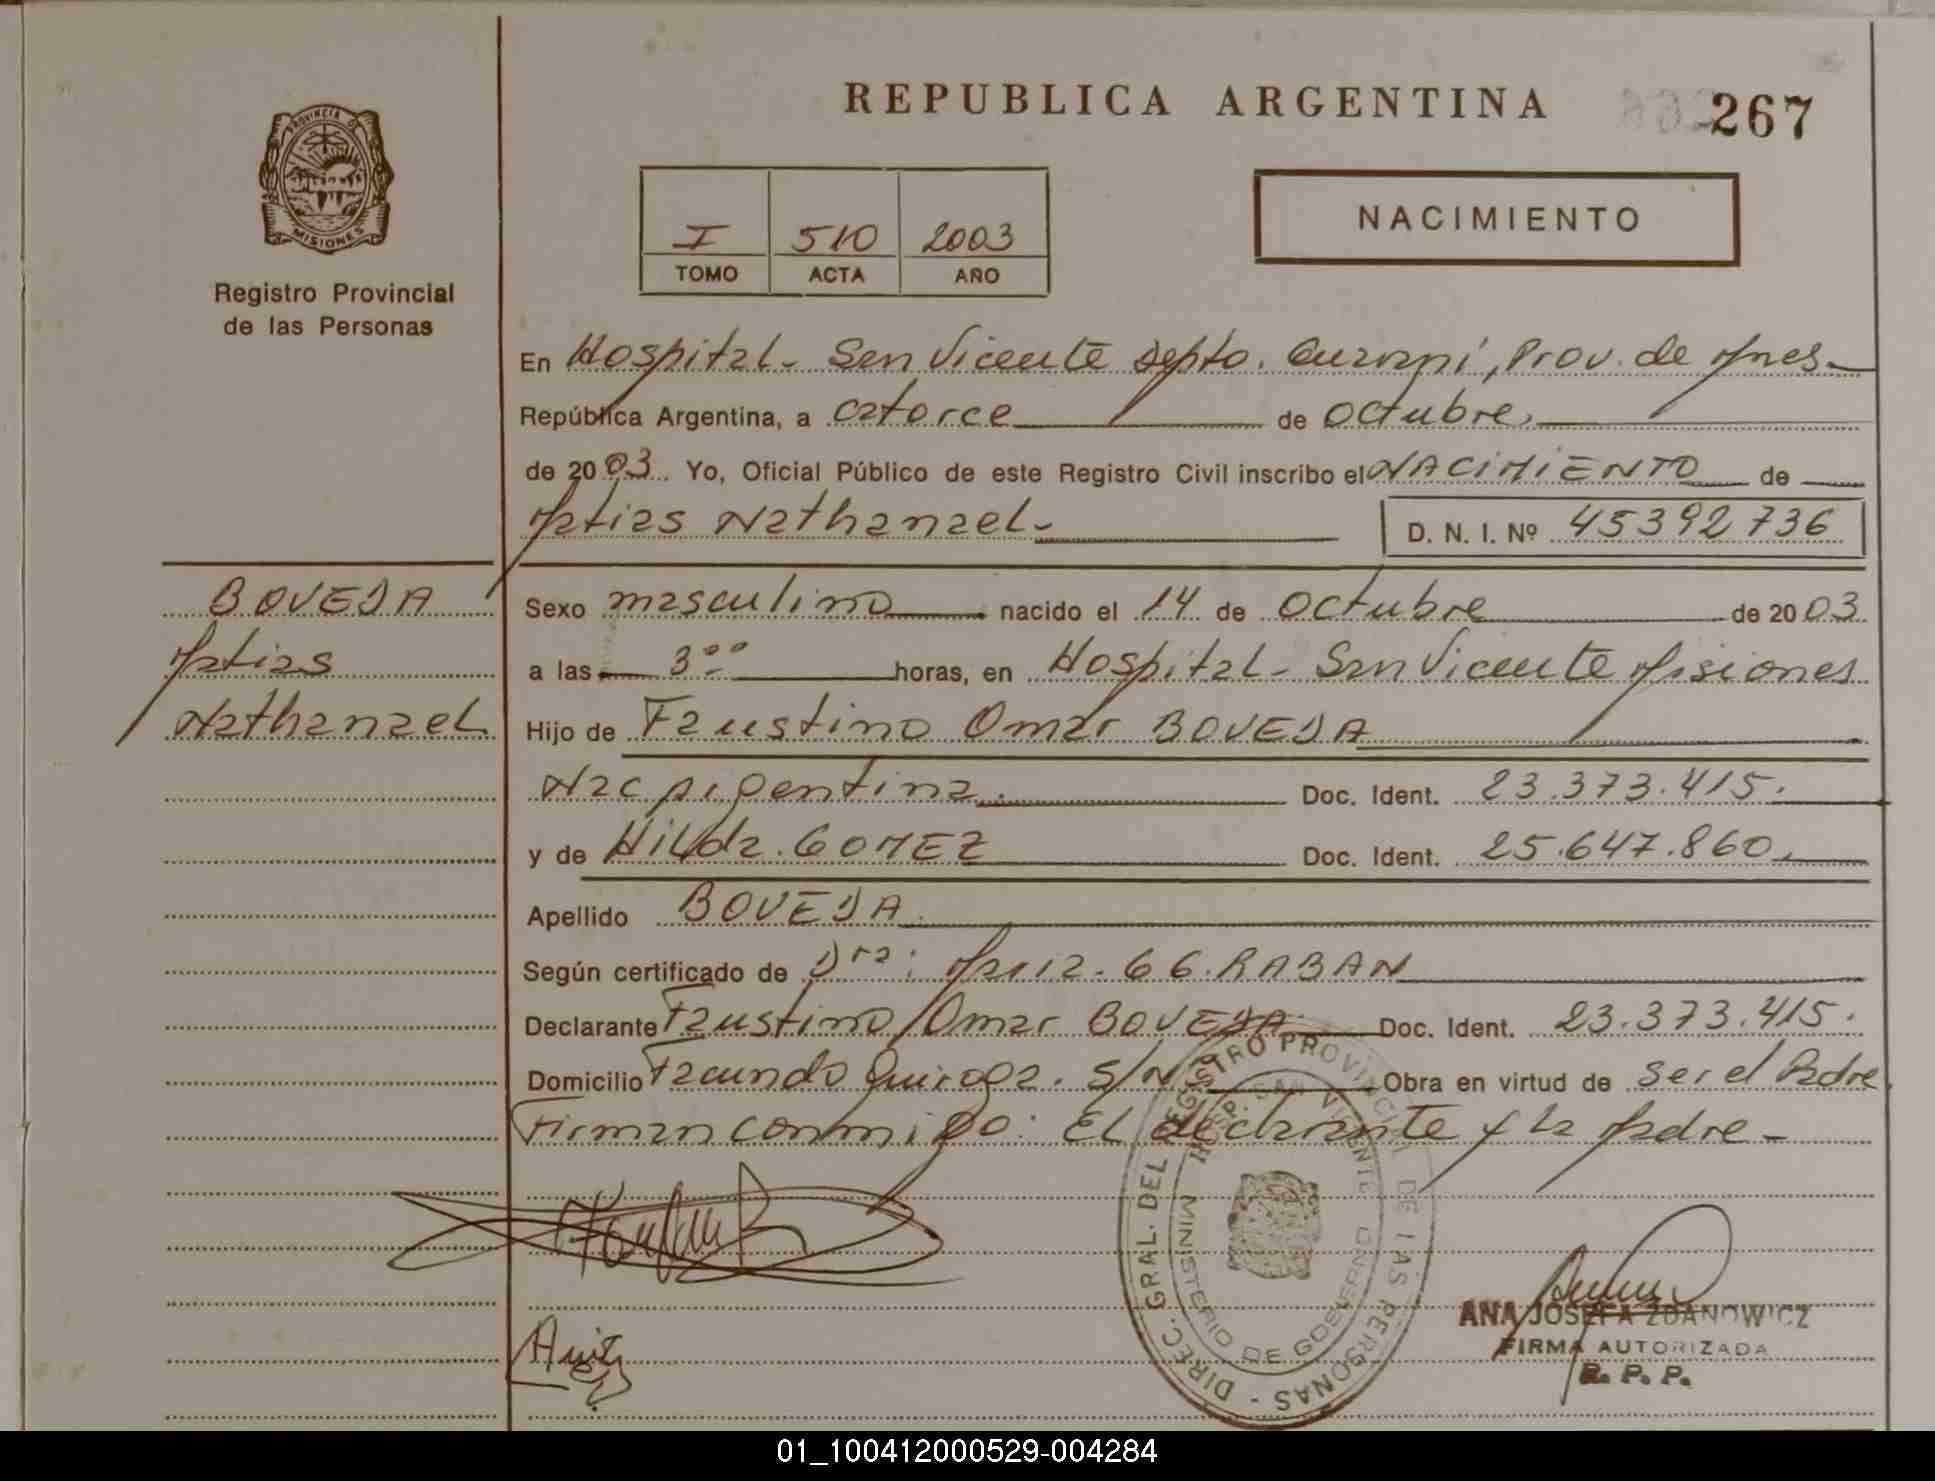 PROVINCIA DE
MISIONES
Registro Provincial
de las Personas
REPUBLICA ARGENTINA
267
I 510 2003
TOMO ACTA AÑO
NACIMIENTO
En Hospital - San Vicente Depto. Guaraní, Prov. de Mnes -
República Argentina, a catorce de Octubre,
de 2003 Yo, Oficial Público de este Registro Civil inscribo el NACIMIENTO de
Matias Nathanael - D. N. I. Nº 45392736
BOVEDA
Matias
Nathanael
Sexo masculino nacido el 14 de Octubre de 2003
a las 3⁰⁰ horas, en Hospital - San Vicente Misiones
Hijo de Faustino Omar BOVEDA
Nac Argentina. Doc. Ident. 23.373.415.
y de Hilda. GOMEZ Doc. Ident. 25.647.860.
Apellido BOVEDA
Según certificado de Dra: Maria. GG. RABAN
Declarante Faustino Omar BOVEDA Doc. Ident. 23.373.415.
Domicilio Facundo Quiroga. S/N Obra en virtud de ser el Padre
Firman conmigo: El declarante y la Madre -
DIREC. GRAL. DEL REGISTRO PROVINCIAL DE LAS PERSONAS -
HOSP. SAN VICENTE
MINISTERIO DE GOBIERNO
ANA JOSEFA ZDANOWICZ
FIRMA AUTORIZADA
R. P. P.
01_100412000529-004284